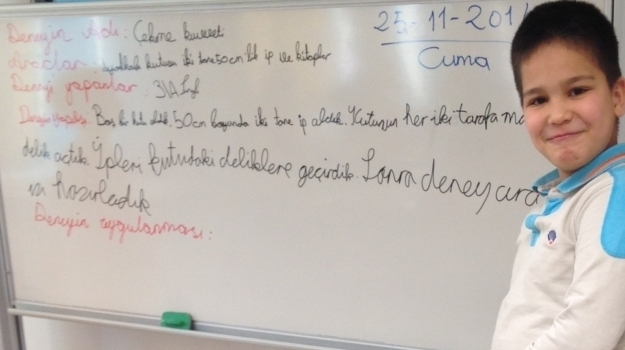 Deneyin Adı: Çekme kuvveti
25-11-201
Cuma
Araçlar: ayakkabı kutusu iki tane 50cm lik ip ve kitaplar
Deneyi yapanlar: 3/A
Boş bir kutu aldık. 50 cm boyunda iki tane ip aldık. Kutunun her iki tarafına
delik açtık. İpleri kutudaki deliklere geçirdik. Sonra deney
hazırladık
Deneyin uygulanması: